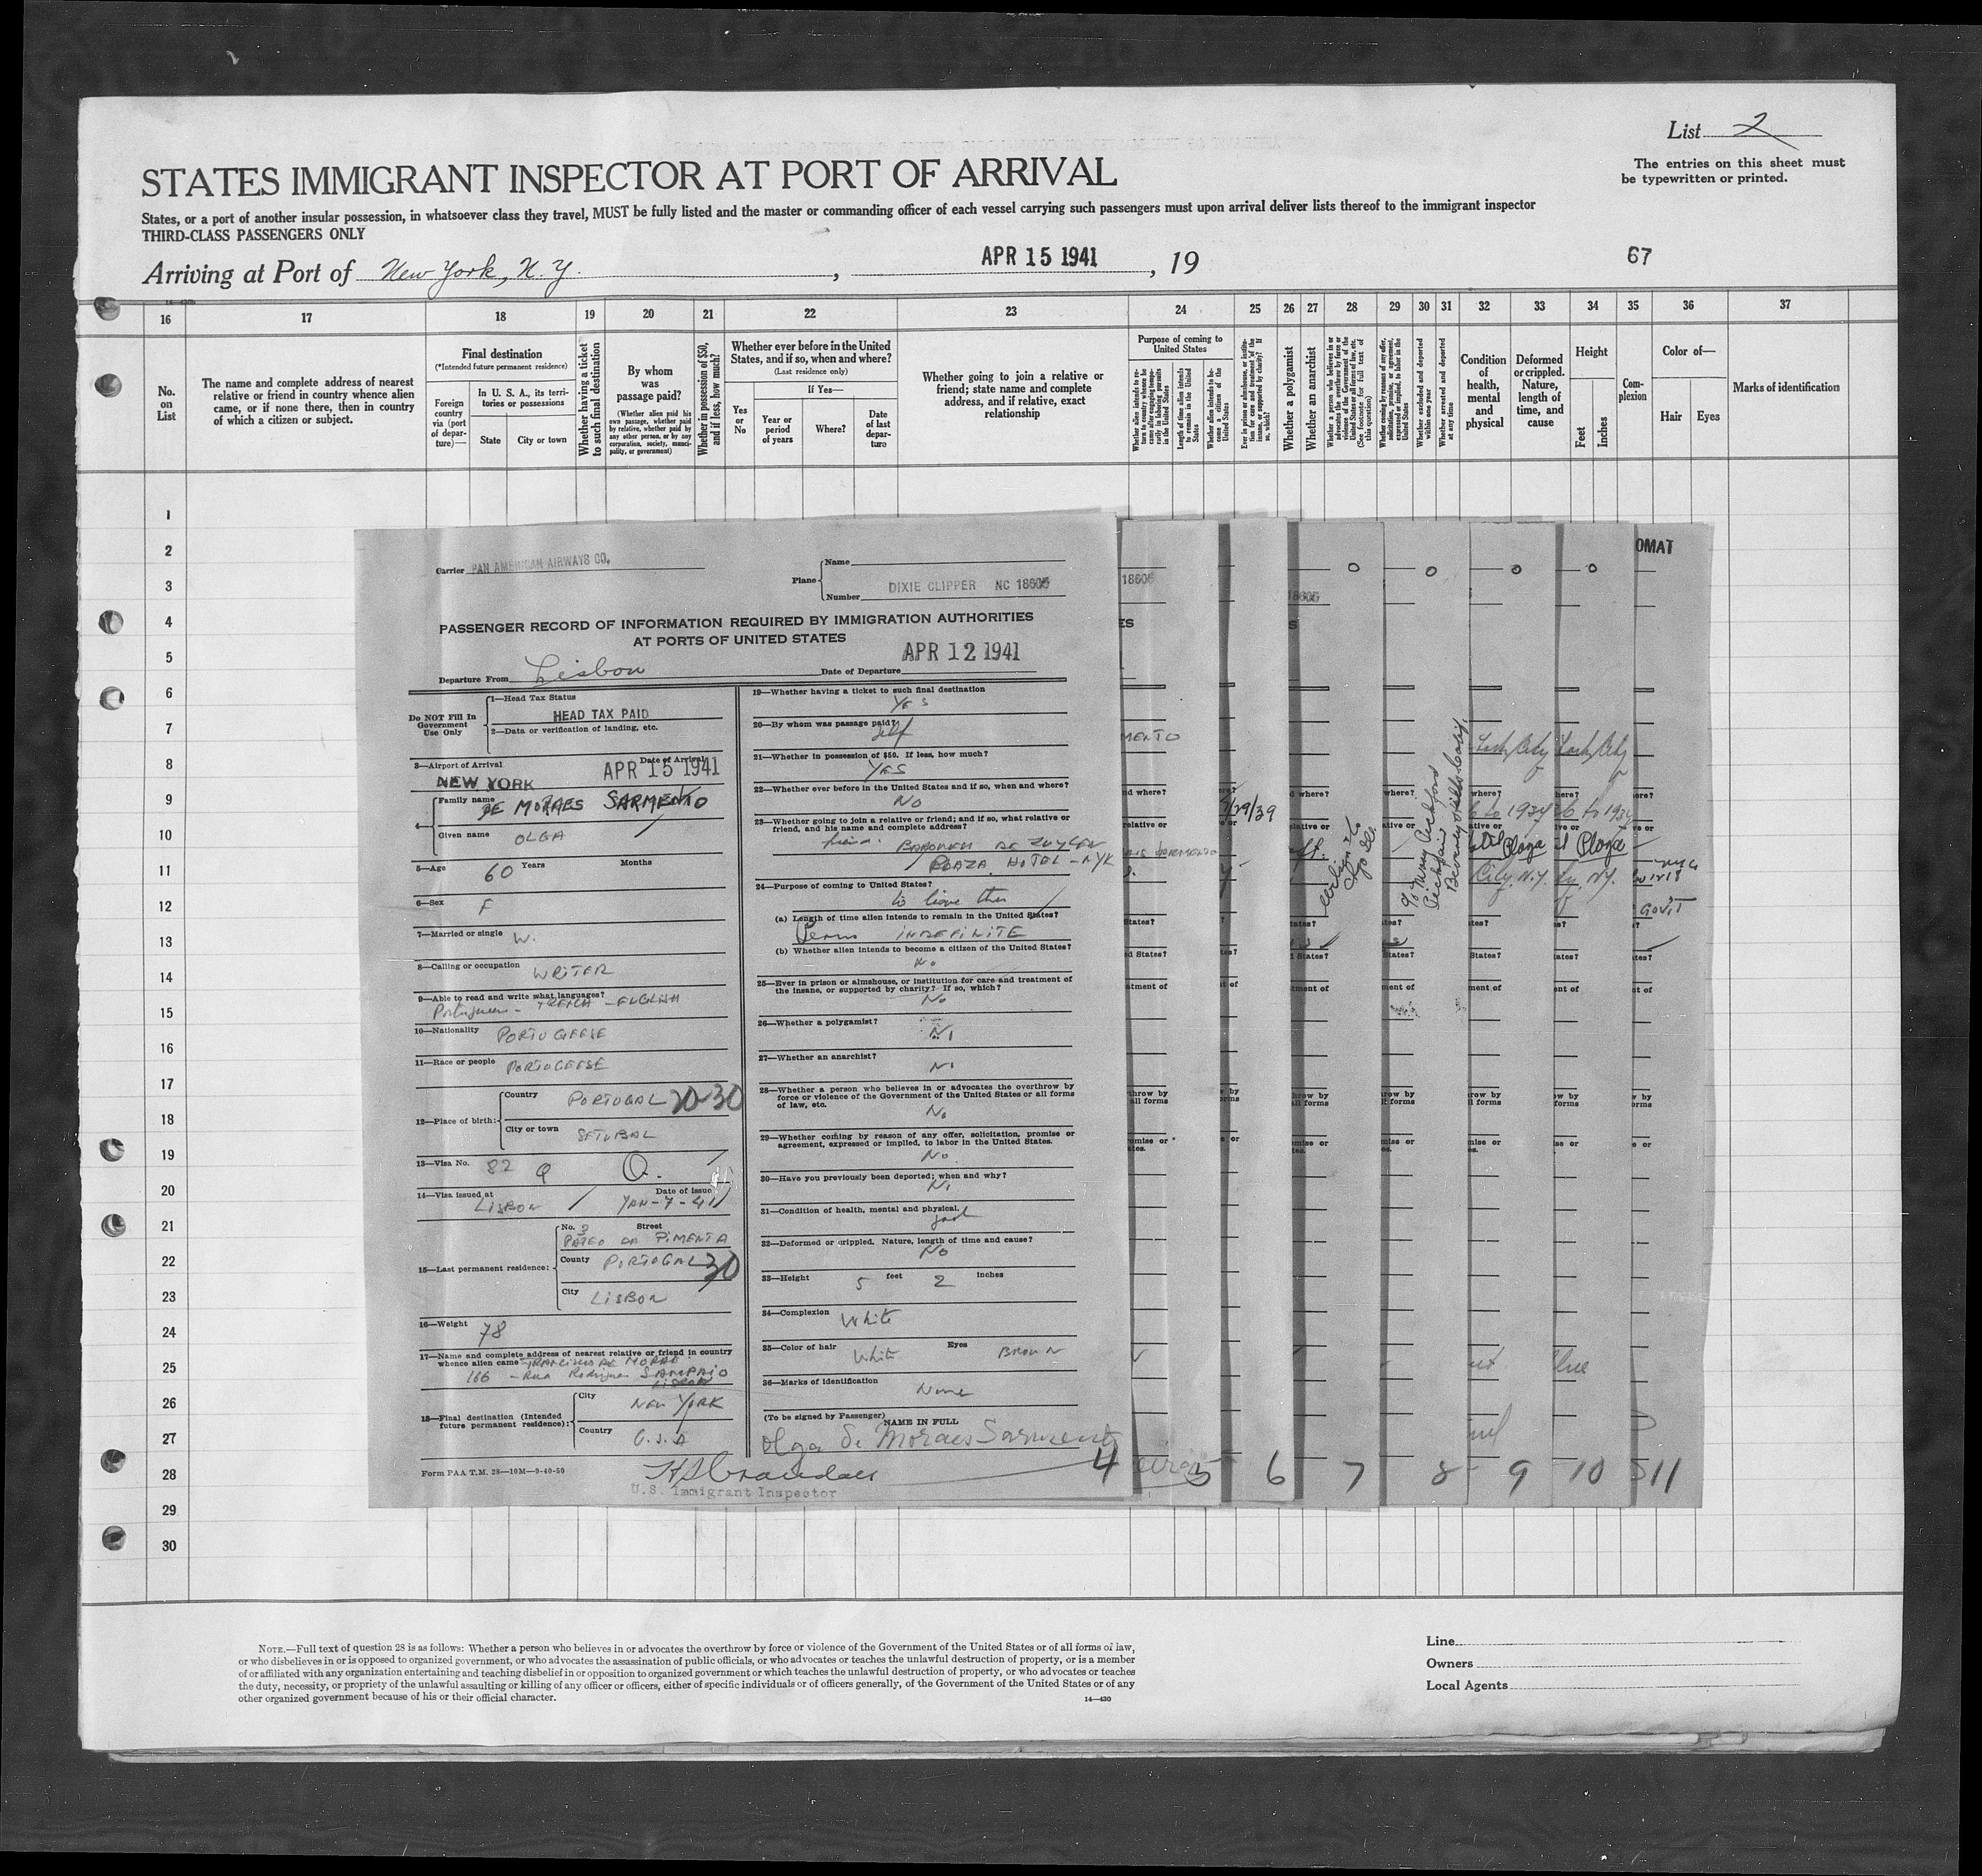 List 2
The entries on this sheet must
be typewritten or printed.
STATES IMMIGRANT INSPECTOR AT PORT OF ARRIVAL
States, or a port of another insular possession, in whatsoever class they travel, MUST be fully listed and the master or commanding officer of each vessel carrying such passengers must upon arrival deliver lists thereof to the immigrant inspector
THIRD-CLASS PASSENGERS ONLY
Arriving at Port of New York, N.Y. , APR 15 1941 , 19
67
16 17 18 19 20 21 22 23 24 25 26 27 28 29 30 31 32 33 34 35 36 37
No. on List
The name and complete address of nearest
relative or friend in country whence alien
came, or if none there, then in country
of which a citizen or subject.
Final destination
(*Intended future permanent residence)
Foreign country via (port of departure)—
In U. S. A., its territories or possessions
State
City or town
Whether having a ticket to such final destination
By whom was passage paid?
(Whether alien paid his own passage, whether paid by relative, whether paid by any other person, or by any corporation, society, municipality, or government)
Whether in possession of $50, and if less, how much?
Whether ever before in the United
States, and if so, when and where?
(Last residence only)
Yes or No
If Yes—
Year or period of years
Where?
Date of last departure
Whether going to join a relative or
friend; state name and complete
address, and if relative, exact
relationship
Purpose of coming to United States
Whether alien intends to return to country whence he came after engaging temporarily in laboring pursuits in the United States
Length of time alien intends to remain in the United States
Whether alien intends to become a citizen of the United States
Ever in prison or almshouse, or institution for care and treatment of the insane, or supported by charity? If so, which?
Whether a polygamist
Whether an anarchist
Whether a person who believes in or advocates the overthrow by force or violence of the Government of the United States or all forms of law, etc. (See footnote for full text of this question)
Whether coming by reasons of any offer, solicitation, promise, or agreement, expressed or implied, to labor in the United States
Whether excluded and deported within one year
Whether arrested and deported at any time
Condition of health, mental and physical
Deformed or crippled. Nature, length of time, and cause
Height
Feet
Inches
Complexion
Color of—
Hair
Eyes
Marks of identification
1
2
3
4
5
6
7
8
9
10
11
12
13
14
15
16
17
18
19
20
21
22
23
24
25
26
27
28
29
30
Carrier PAN AMERICAN AIRWAYS CO.
Plane
Name
Number DIXIE CLIPPER NC 18605
PASSENGER RECORD OF INFORMATION REQUIRED BY IMMIGRATION AUTHORITIES
AT PORTS OF UNITED STATES
Departure From Lisbon Date of Departure APR 12 1941
Do NOT Fill In Government Use Only
1—Head Tax Status
HEAD TAX PAID
2—Data or verification of landing, etc.
3—Airport of Arrival NEW YORK Date of Arrival APR 15 1941
4—
Family name DE MORAES SARMENTO
Given name OLGA
5—Age 60 Years Months
6—Sex F
7—Married or single W.
8—Calling or occupation WRITER
9—Able to read and write what languages?
Portuguese - FRENCH - ENGLISH
10—Nationality PORTUGEESE
11—Race or people PORTUGEESE
12—Place of birth:
Country PORTUGAL 20-30
City or town SETUBAL
13—Visa No. 82 Q Q.
14—Visa issued at LISBON Date of issue JAN-7-41
15—Last permanent residence:
No. 3 Street
PATEO DA PIMENTA
County PORTUGAL 30
City LISBON
16—Weight 78
17—Name and complete address of nearest relative or friend in country
whence alien came FRANCISCO DE MORAE
166 - Rua Rodrigues SAMPAIO
LISBON
18—Final destination (Intended future permanent residence):
City NEW YORK
Country U.S.A
Form PAA T.M. 28—10M—9-40-50
U.S. Immigrant Inspector
19—Whether having a ticket to such final destination
YES
20—By whom was passage paid?
Self
21—Whether in possession of $50. If less, how much?
YES
22—Whether ever before in the United States and if so, when and where?
No
23—Whether going to join a relative or friend; and if so, what relative or
friend, and his name and complete address?
friend. BARONEN DE ZUYLEN
PLAZA HOTEL - NYK
24—Purpose of coming to United States?
to live there
(a) Length of time alien intends to remain in the United States?
Perm INDEFINITE
(b) Whether alien intends to become a citizen of the United States?
No
25—Ever in prison or almshouse, or institution for care and treatment of
the insane, or supported by charity? If so, which?
No
26—Whether a polygamist?
No
27—Whether an anarchist?
No
28—Whether a person who believes in or advocates the overthrow by
force or violence of the Government of the United States or all forms
of law, etc.
No
29—Whether coming by reason of any offer, solicitation, promise or
agreement, expressed or implied, to labor in the United States.
No
30—Have you previously been deported; when and why?
No
31—Condition of health, mental and physical.
good
32—Deformed or crippled. Nature, length of time and cause?
No
33—Height 5 feet 2 inches
34—Complexion White
35—Color of hair White Eyes Brown
36—Marks of identification None
(To be signed by Passenger) NAME IN FULL
Olga de Moraes Sarmento
4 5 6 7 8 9 10 11
18605
18605
OMAT
9/29/39
% Mary Pickford
Pickfair
Beverly Hills
to 1934
to 1934
Plaza
Plaza
City, N.Y.
N.Y.
GOV'T
Blue
NOTE.—Full text of question 28 is as follows: Whether a person who believes in or advocates the overthrow by force or violence of the Government of the United States or of all forms of law,
or who disbelieves in or is opposed to organized government, or who advocates the assassination of public officials, or who advocates or teaches the unlawful destruction of property, or is a member
of or affiliated with any organization entertaining and teaching disbelief in or opposition to organized government or which teaches the unlawful destruction of property, or who advocates or teaches
the duty, necessity, or propriety of the unlawful assaulting or killing of any officer or officers, either of specific individuals or of officers generally, of the Government of the United States or of any
other organized government because of his or their official character.
14—430
Line
Owners
Local Agents